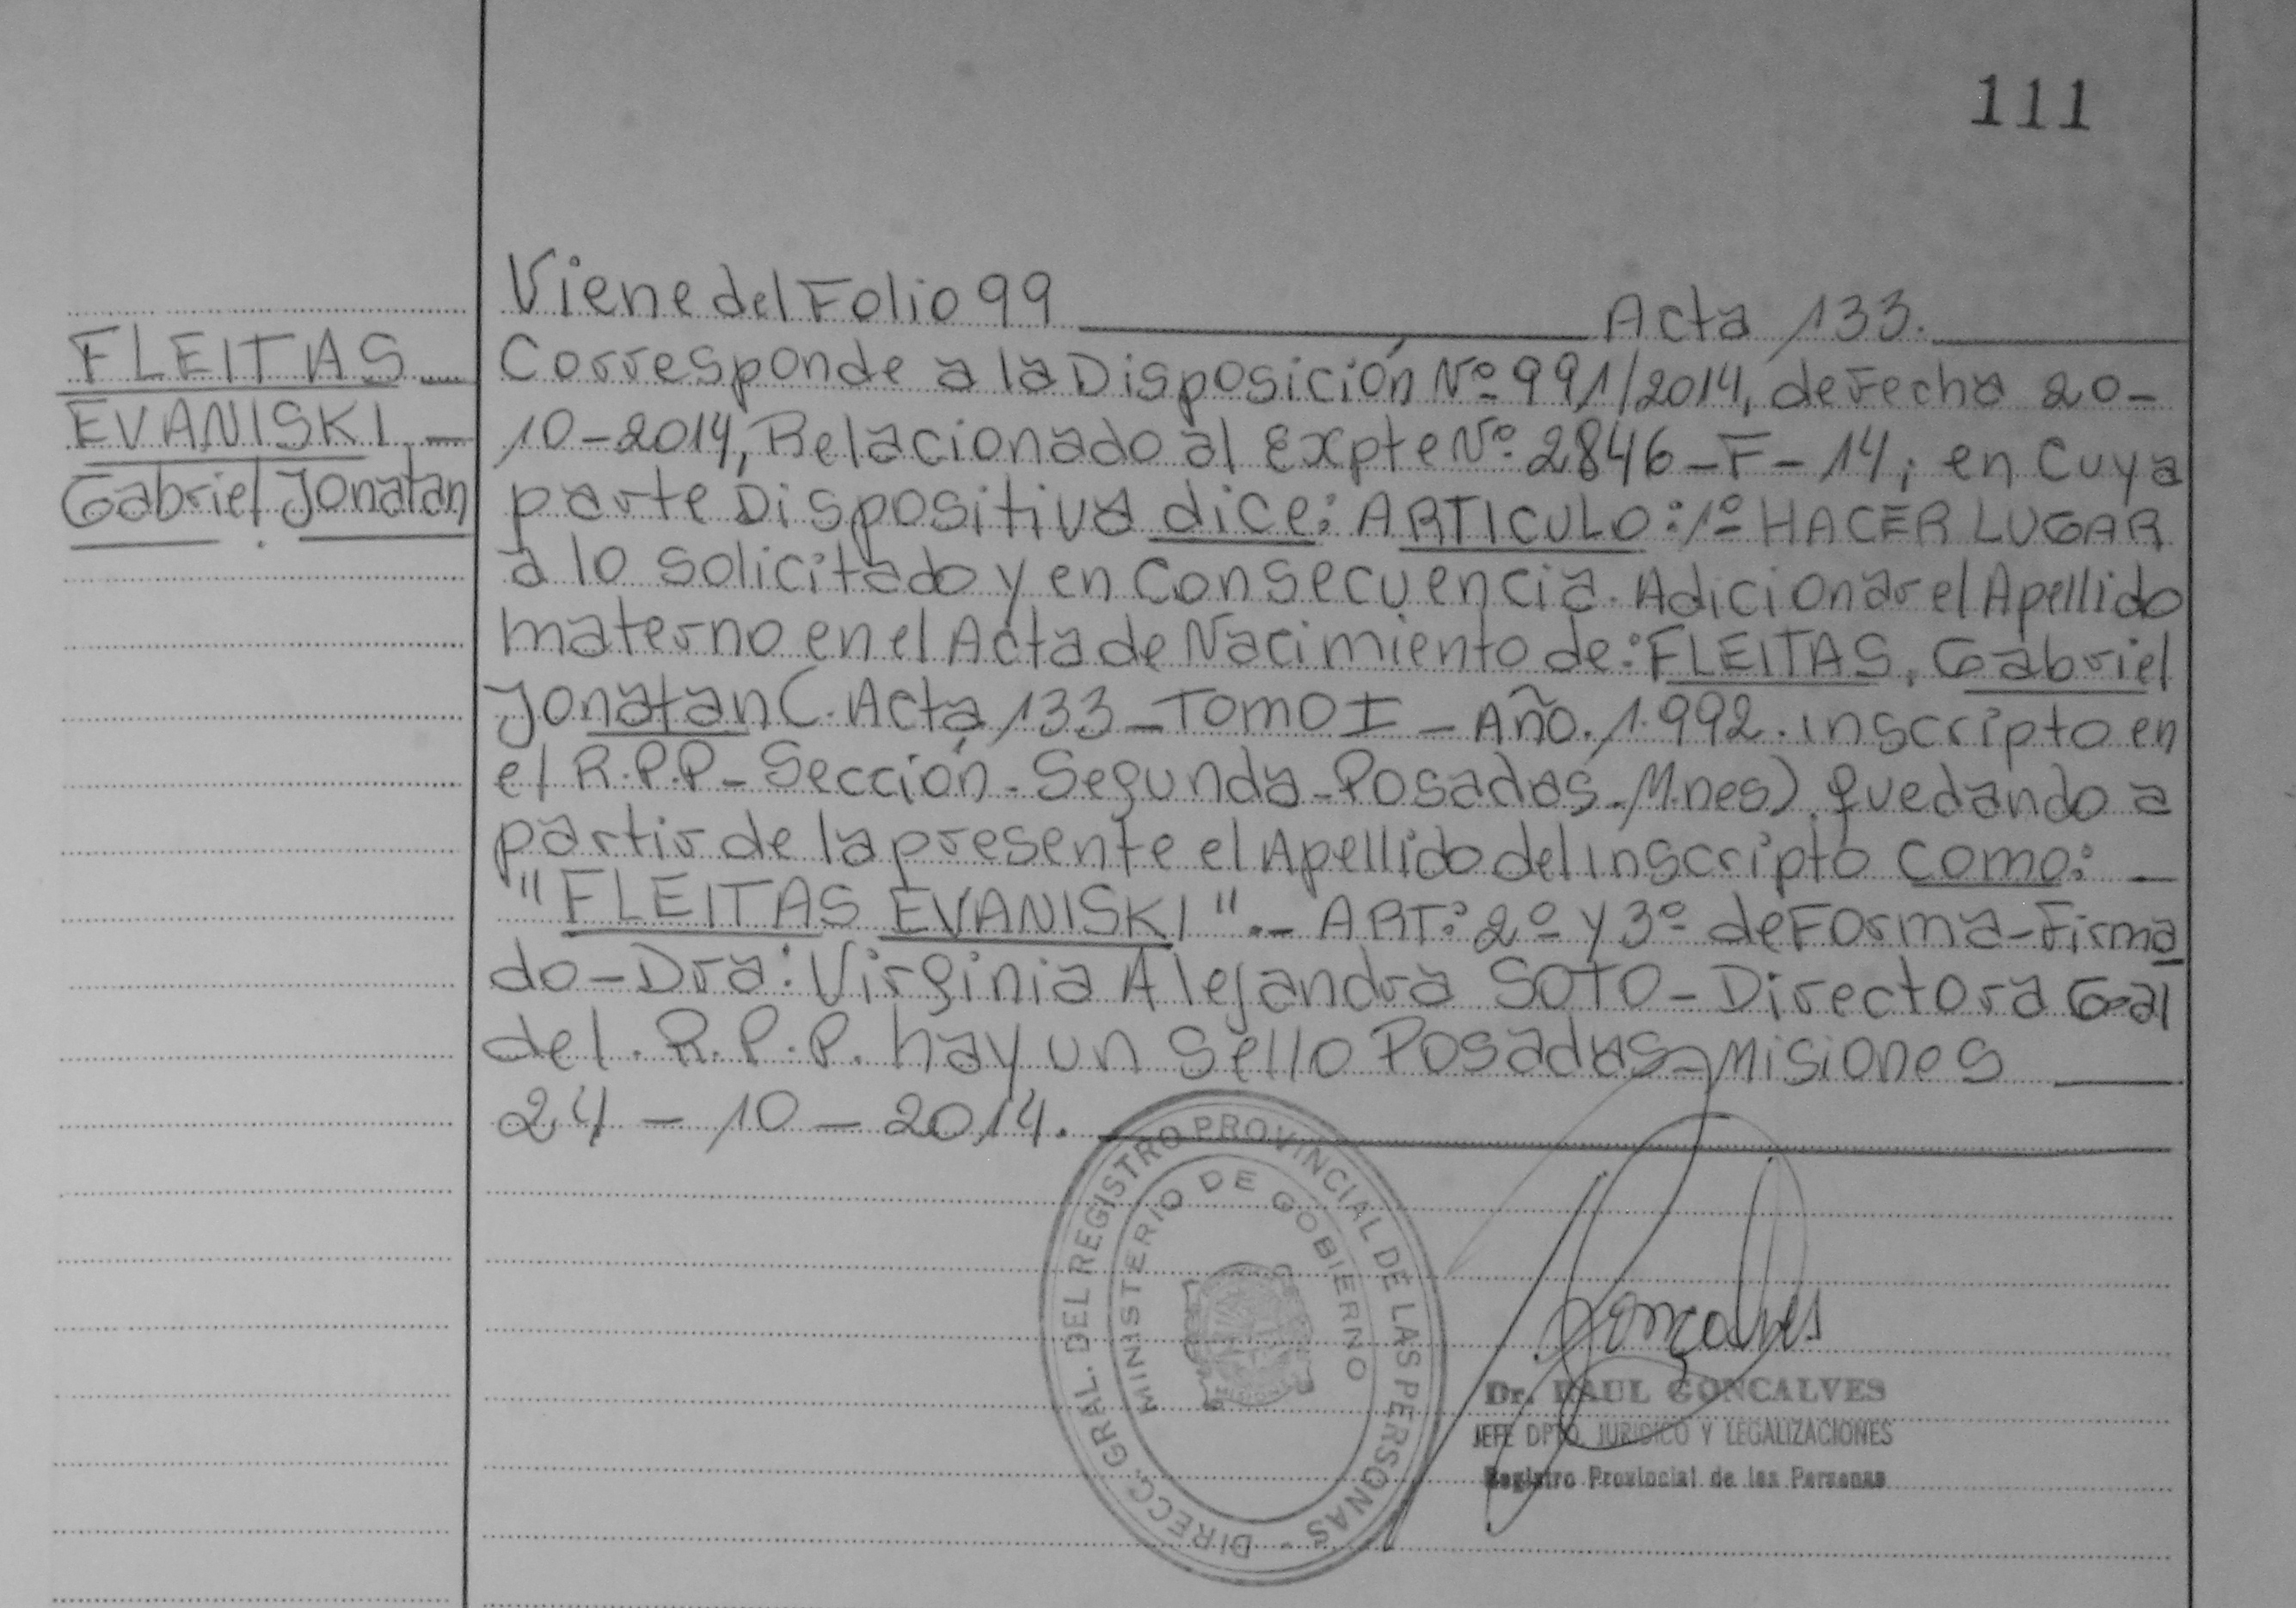 111
Viene del Folio 99 Acta 133.
FLEITAS
EVANISKI
Gabriel Jonatan
Corresponde a la Disposición Nº 991/2014, de Fecha 20-
10-2014, Relacionado al Expte Nº 2846-F-14; en Cuya
parte Dispositiva dice: ARTICULO: 1º HACER LUGAR
a lo solicitado y en Consecuencia. Adicionar el Apellido
materno en el Acta de Nacimiento de: FLEITAS, Gabriel
Jonatan (. Acta 133 - Tomo I - Año. 1.992. inscripto en
el R.P.P - Sección - Segunda - Posadas. Mnes) quedando a
partir de la presente el Apellido del inscripto como: -
"FLEITAS EVANISKI". - ART: 2º y 3º de Forma - Firma
do - Dra: Virginia Alejandra SOTO - Directora Gral
del. R.P.P. hay un Sello Posadas - Misiones
24 - 10 - 2014.
DIRECC. GRAL. DEL REGISTRO PROVINCIAL DE LAS PERSONAS -
MINISTERIO DE GOBIERNO
Gonçalves
Dr. RAUL GONCALVES
JEFE DPTO. JURIDICO Y LEGALIZACIONES
Registro Provincial de las Personas